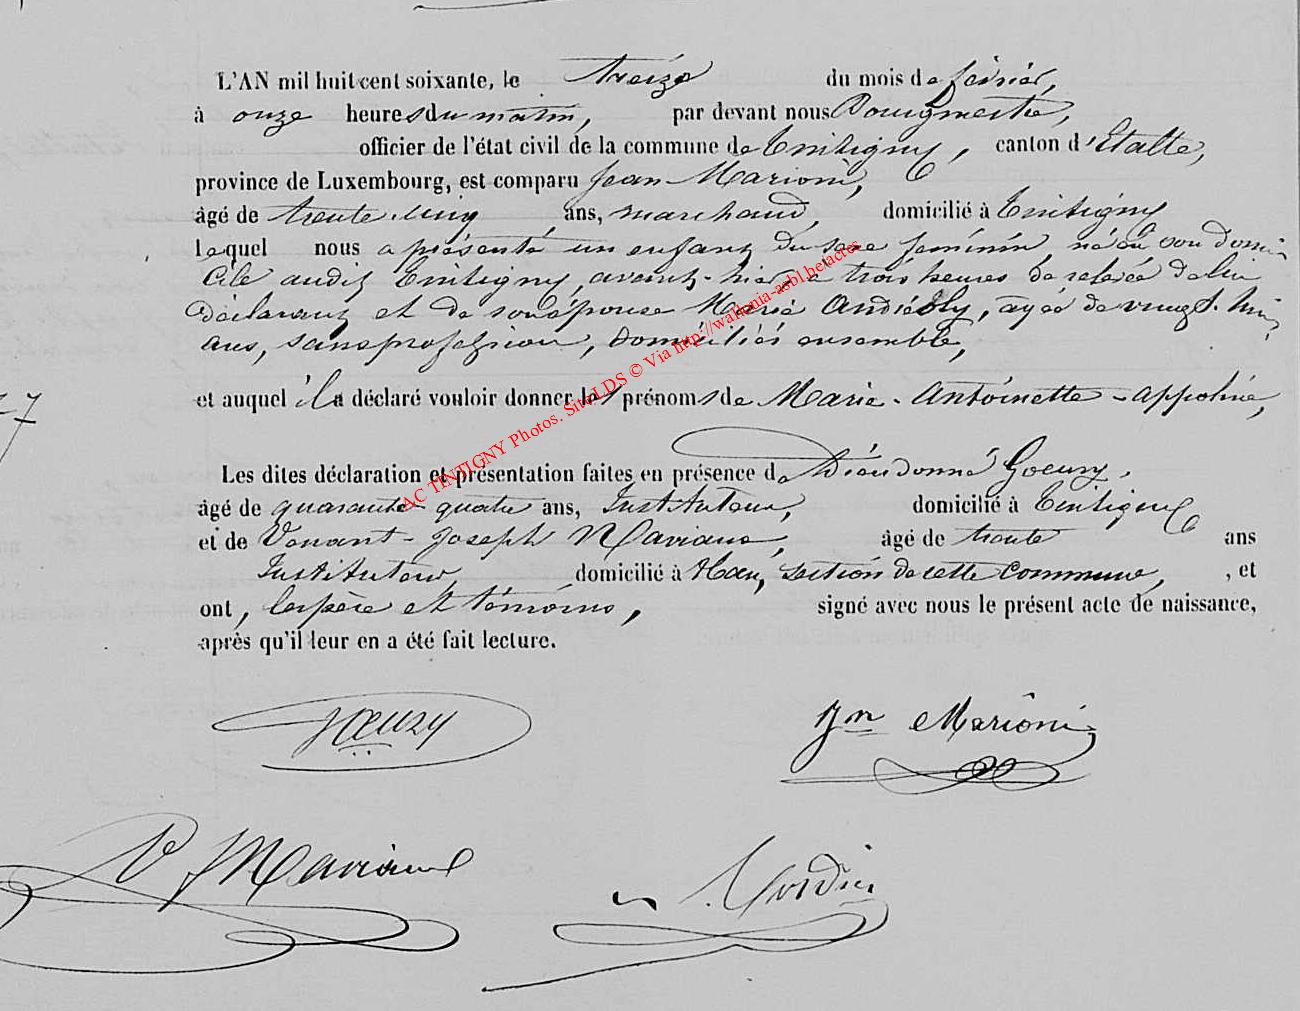 L'AN mil huit cent soixante, le treize du mois de février,
à onze heures du matin, par devant nous Bourgmestre,
officier de l'état civil de la commune de Tintigny, canton d'Etalle,
province de Luxembourg, est comparu Jean Marioni,
âgé de trente cinq ans, marchand, domicilié à Tintigny
lequel nous a présenté un enfant du sexe féminin né en son domi-
cile audit Tintigny, avant-hier à trois heures de relevée de lui
déclarant et de son épouse Marie, âgée de vingt
ans, sans profession, domiciliés ensemble,
et auquel il a déclaré vouloir donner les prénoms de Marie-Antoinette-Appoline,
Les dites déclaration et présentation faites en présence de Dieudonné Goeury,
âgé de quarante-quatre ans, Instituteur, domicilié à Tintigny
et de Venant-Joseph Maviaux, âgé de trente ans
Instituteur, domicilié à Han, section de cette commune, , et
ont, les père et témoins, signé avec nous le présent acte de naissance,
après qu'il leur en a été fait lecture.
Goeury
Jn Marioni
V Maviaux
AC TINTIGNY Photos. SiteLDS © Via http://wallonia-asbl.be/actes